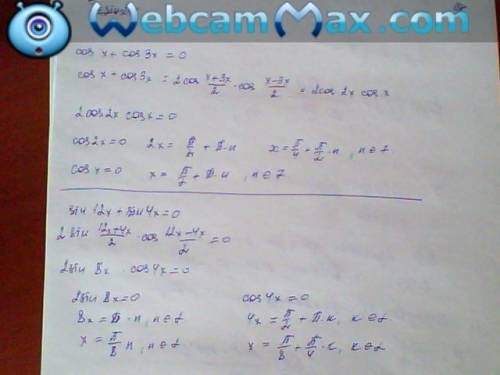 WebcamMax.com
cos x + cos 3x = 0
cos x + cos 3x = 2cos (x+3x)/2 · cos (x-3x)/2 = 2cos 2x cos x
2cos2x cosx = 0
cos2x=0 2x = π/2 + π·n x = π/4 + π/2·n, n∈Z
cos x = 0 x = π/2 + π·n, n∈Z
sin 12x + sin 4x = 0
2 sin (12x+4x)/2 · cos (12x-4x)/2 = 0
2sin 8x · cos4x = 0
2sin 8x=0 cos4x=0
8x = π·n, n∈Z 4x = π/2 + π·k, k∈Z
x = π/8 n, n∈Z x = π/8 + π/4·k, k∈Z